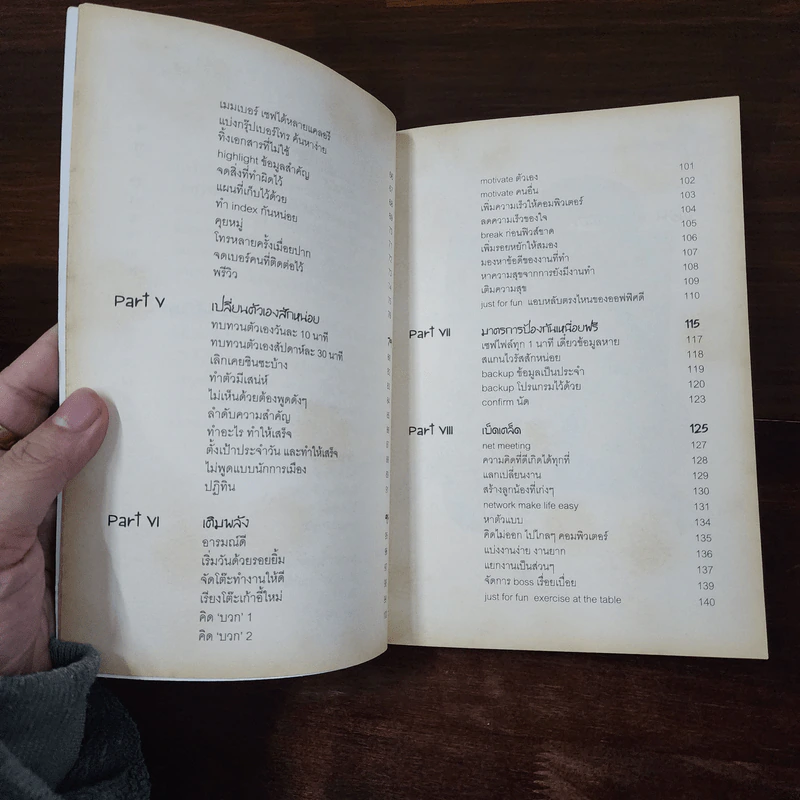 เมมเบอร์ เซฟได้หลายแคลอรี
แบ่งกรุ๊ปเบอร์โทร ค้นหาง่าย
ทิ้งเอกสารที่ไม่ใช้
highlight ข้อมูลสำคัญ
จดสิ่งที่ทำผิดไว้
แผนที่เก็บไว้ด้วย
ทำ index กันหน่อย
คุยหมู่
โทรหลายครั้งเมื่อยปาก
จดเบอร์คนที่ติดต่อไว้
พรีวิว
Part V เปลี่ยนตัวเองสักหน่อย
ทบทวนตัวเองวันละ 10 นาที
ทบทวนตัวเองสัปดาห์ละ 30 นาที
เลิกเคยชินซะบ้าง
ทำตัวมีเสน่ห์
ไม่เห็นด้วยต้องพูดดังๆ
ลำดับความสำคัญ
ทำอะไร ทำให้เสร็จ
ตั้งเป้าประจำวัน และทำให้เสร็จ
ไม่พูดแบบนักการเมือง
ปฏิทิน
Part VI เติมพลัง
อารมณ์ดี
เริ่มวันด้วยรอยยิ้ม
จัดโต๊ะทำงานให้ดี
เรียงโต๊ะเก้าอี้ใหม่
คิด ‘บวก’ 1
คิด ‘บวก’ 2
motivate ตัวเอง 101
motivate คนอื่น 102
เพิ่มความเร็วให้คอมพิวเตอร์ 103
ลดความเร็วของใจ 104
break ก่อนฟิวส์ขาด 105
เพิ่มรอยหยักให้สมอง 106
มองหาข้อดีของงานที่ทำ 107
หาความสุขจากการยังมีงานทำ 108
เติมความสุข 109
just for fun แอบหลับตรงไหนของออฟฟิศดี 110
Part VII มาตรการป้องกันเหนื่อยฟรี 115
เซฟไฟล์ทุก 1 นาที เดี๋ยวข้อมูลหาย 117
สแกนไวรัสสักหน่อย 118
backup ข้อมูลเป็นประจำ 119
backup โปรแกรมไว้ด้วย 120
confirm นัด 123
Part VIII เบ็ดเตล็ด 125
net meeting 127
ความคิดที่ดีเกิดได้ทุกที่ 128
แลกเปลี่ยนงาน 129
สร้างลูกน้องที่เก่งๆ 130
network make life easy 131
หาตัวแบบ 134
คิดไม่ออก ไปไกลๆ คอมพิวเตอร์ 135
แบ่งงานง่าย งานยาก 136
แยกงานเป็นส่วนๆ 137
จัดการ boss เรื่อยเปื่อย 139
just for fun exercise at the table 140